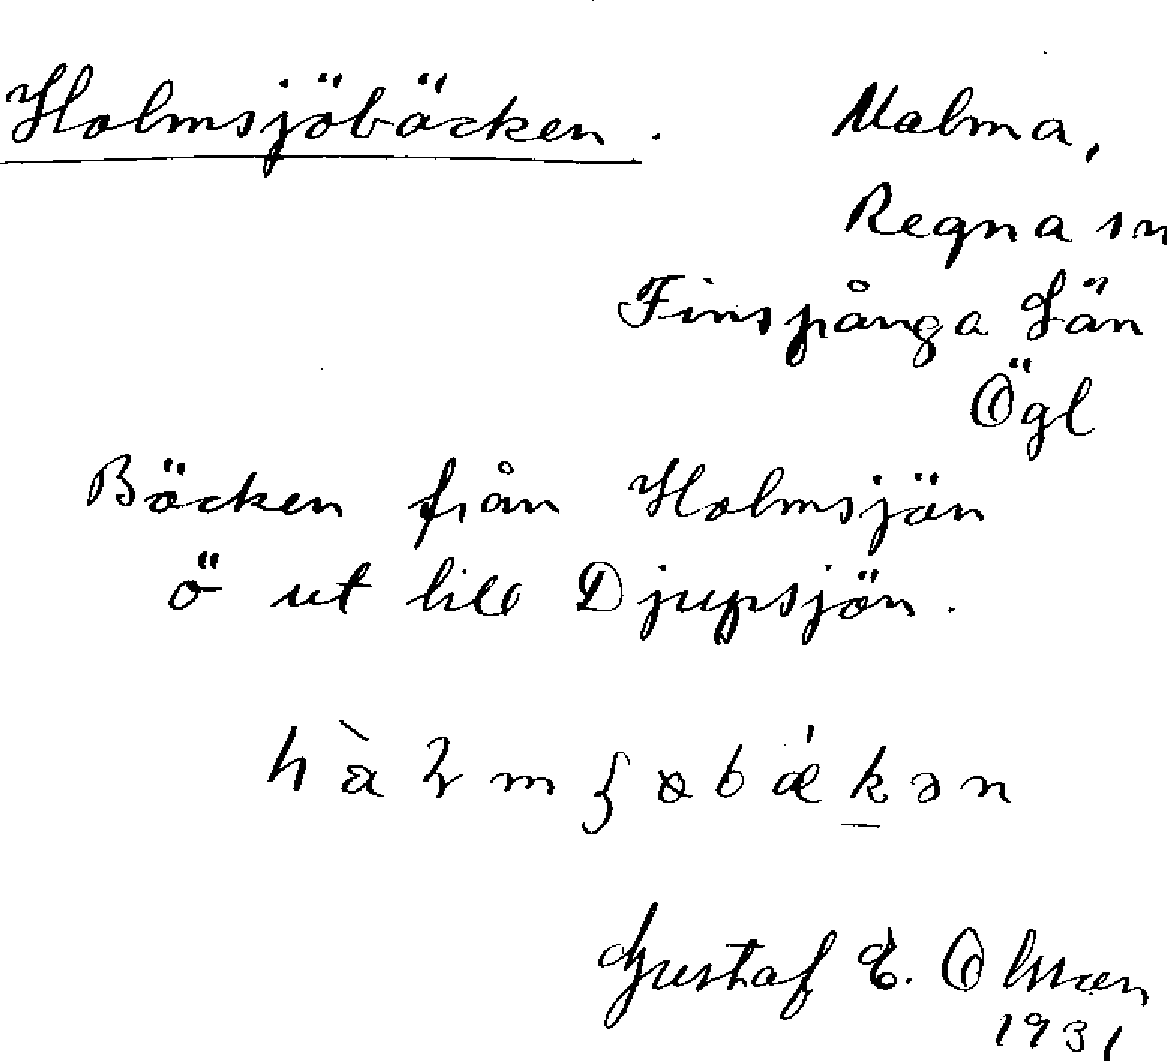 Holmsjöbäcken. Malma,
Regna sn
Finspånga Län
Ögl
Bäcken från Holmsjön
ö ut till Djupsjön.
Gustaf E. Olsson
1931